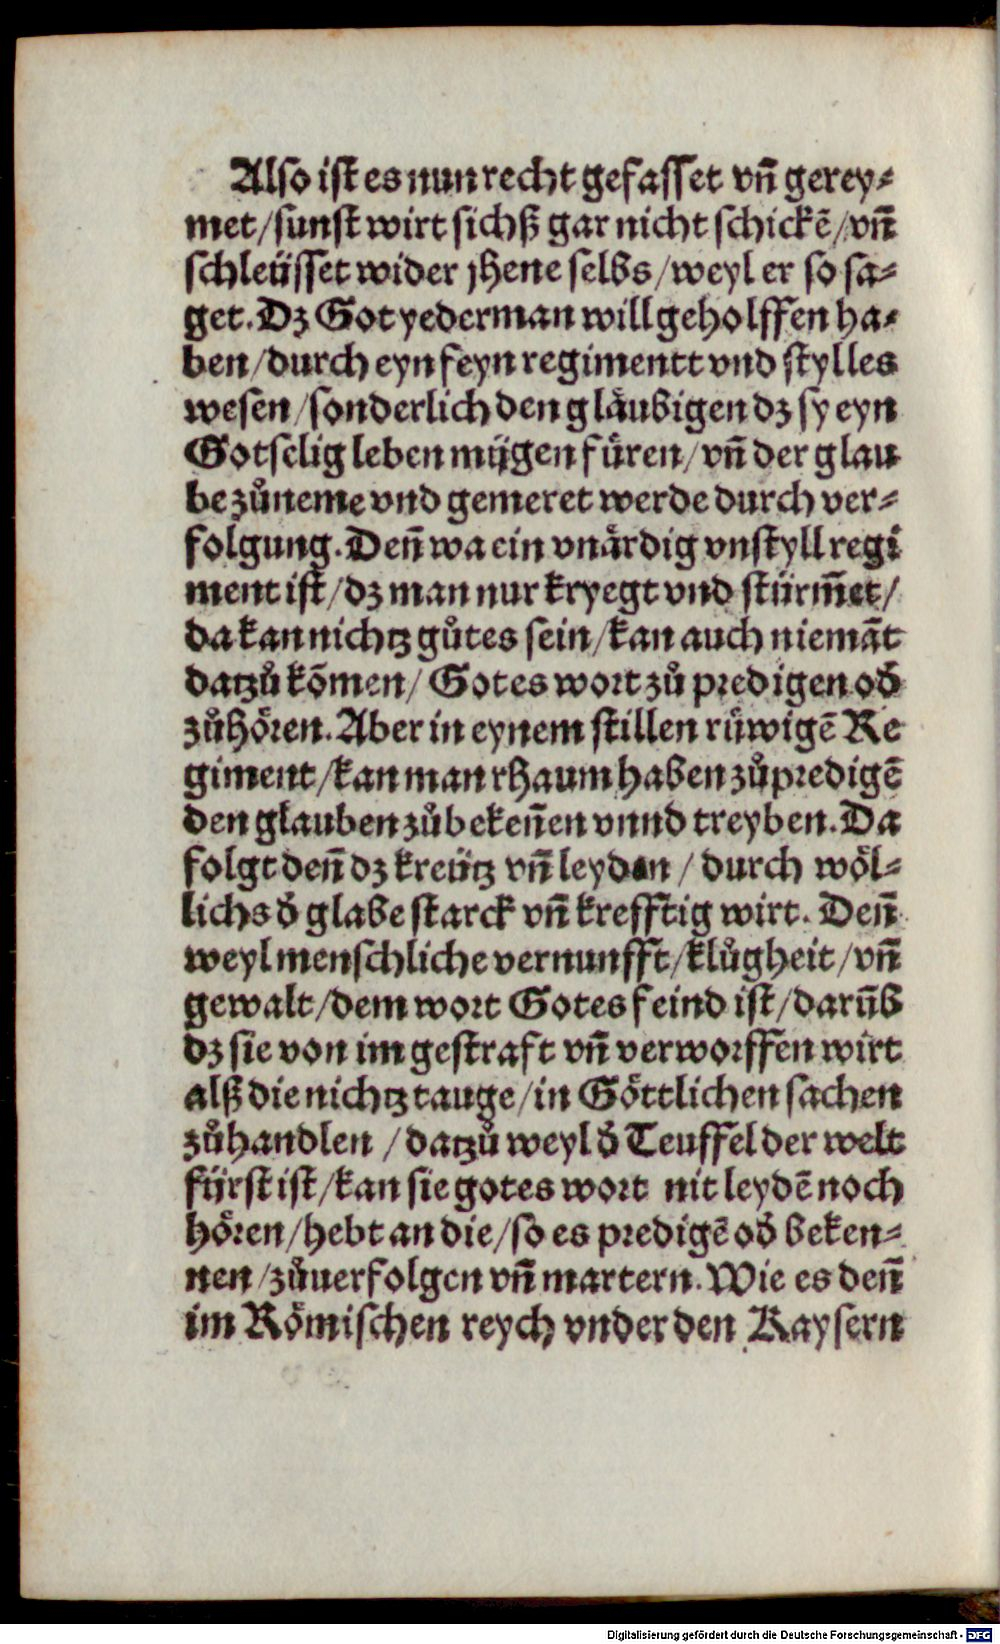 Also ist es nun recht gefasset vñ gerey-
met/sunst wirt sichß gar nicht schickẽ/vñ
schleüsset wider jhene selbs/weyl er so sa-
get. Dz Got yederman will geholffen ha-
ben/durch eyn feyn regimentt vnd stylles
wesen/sonderlich den gläubigen dz sy eyn
Gotselig leben mügen füren/vñ der glau
be zůneme vnd gemeret werde durch ver-
folgung. Deñ wa ein vnärdig vnstyll regi
ment ist/dz man nur kryegt vnd stürm̃et/
da kan nichtz gůtes sein/kan auch niemãt
datzů kõmen/ Gotes wort zů predigen od̕
zůhören. Aber in eynem stillen rüwigẽ Re
giment/kan man rhaum haben zůpredigẽ
den glauben zůbekeñen vnnd treyben. Da
folgt deñ dz kreütz vñ leyden / durch wöl-
lichs d̕ glabe starck vñ krefftig wirt. Deñ
weyl menschliche vernunfft/klůgheit/vñ
gewalt/dem wort Gotes feind ist/darũb
dz sie von im gestraft vñ verworffen wirt
alß die nichtz tauge/in Göttlichen sachen
zůhandlen /datzů weyl d̕ Teuffel der welt
fürst ist/kan sie gotes wort nit leydẽ noch
hören/hebt an die/so es predigẽ od̕ beken-
nen/zůuerfolgen vñ martern. Wie es deñ
im Römischen reych vnder den Kaysern
Digitalisierung gefördert durch die Deutsche Forschungsgemeinschaft - DFG